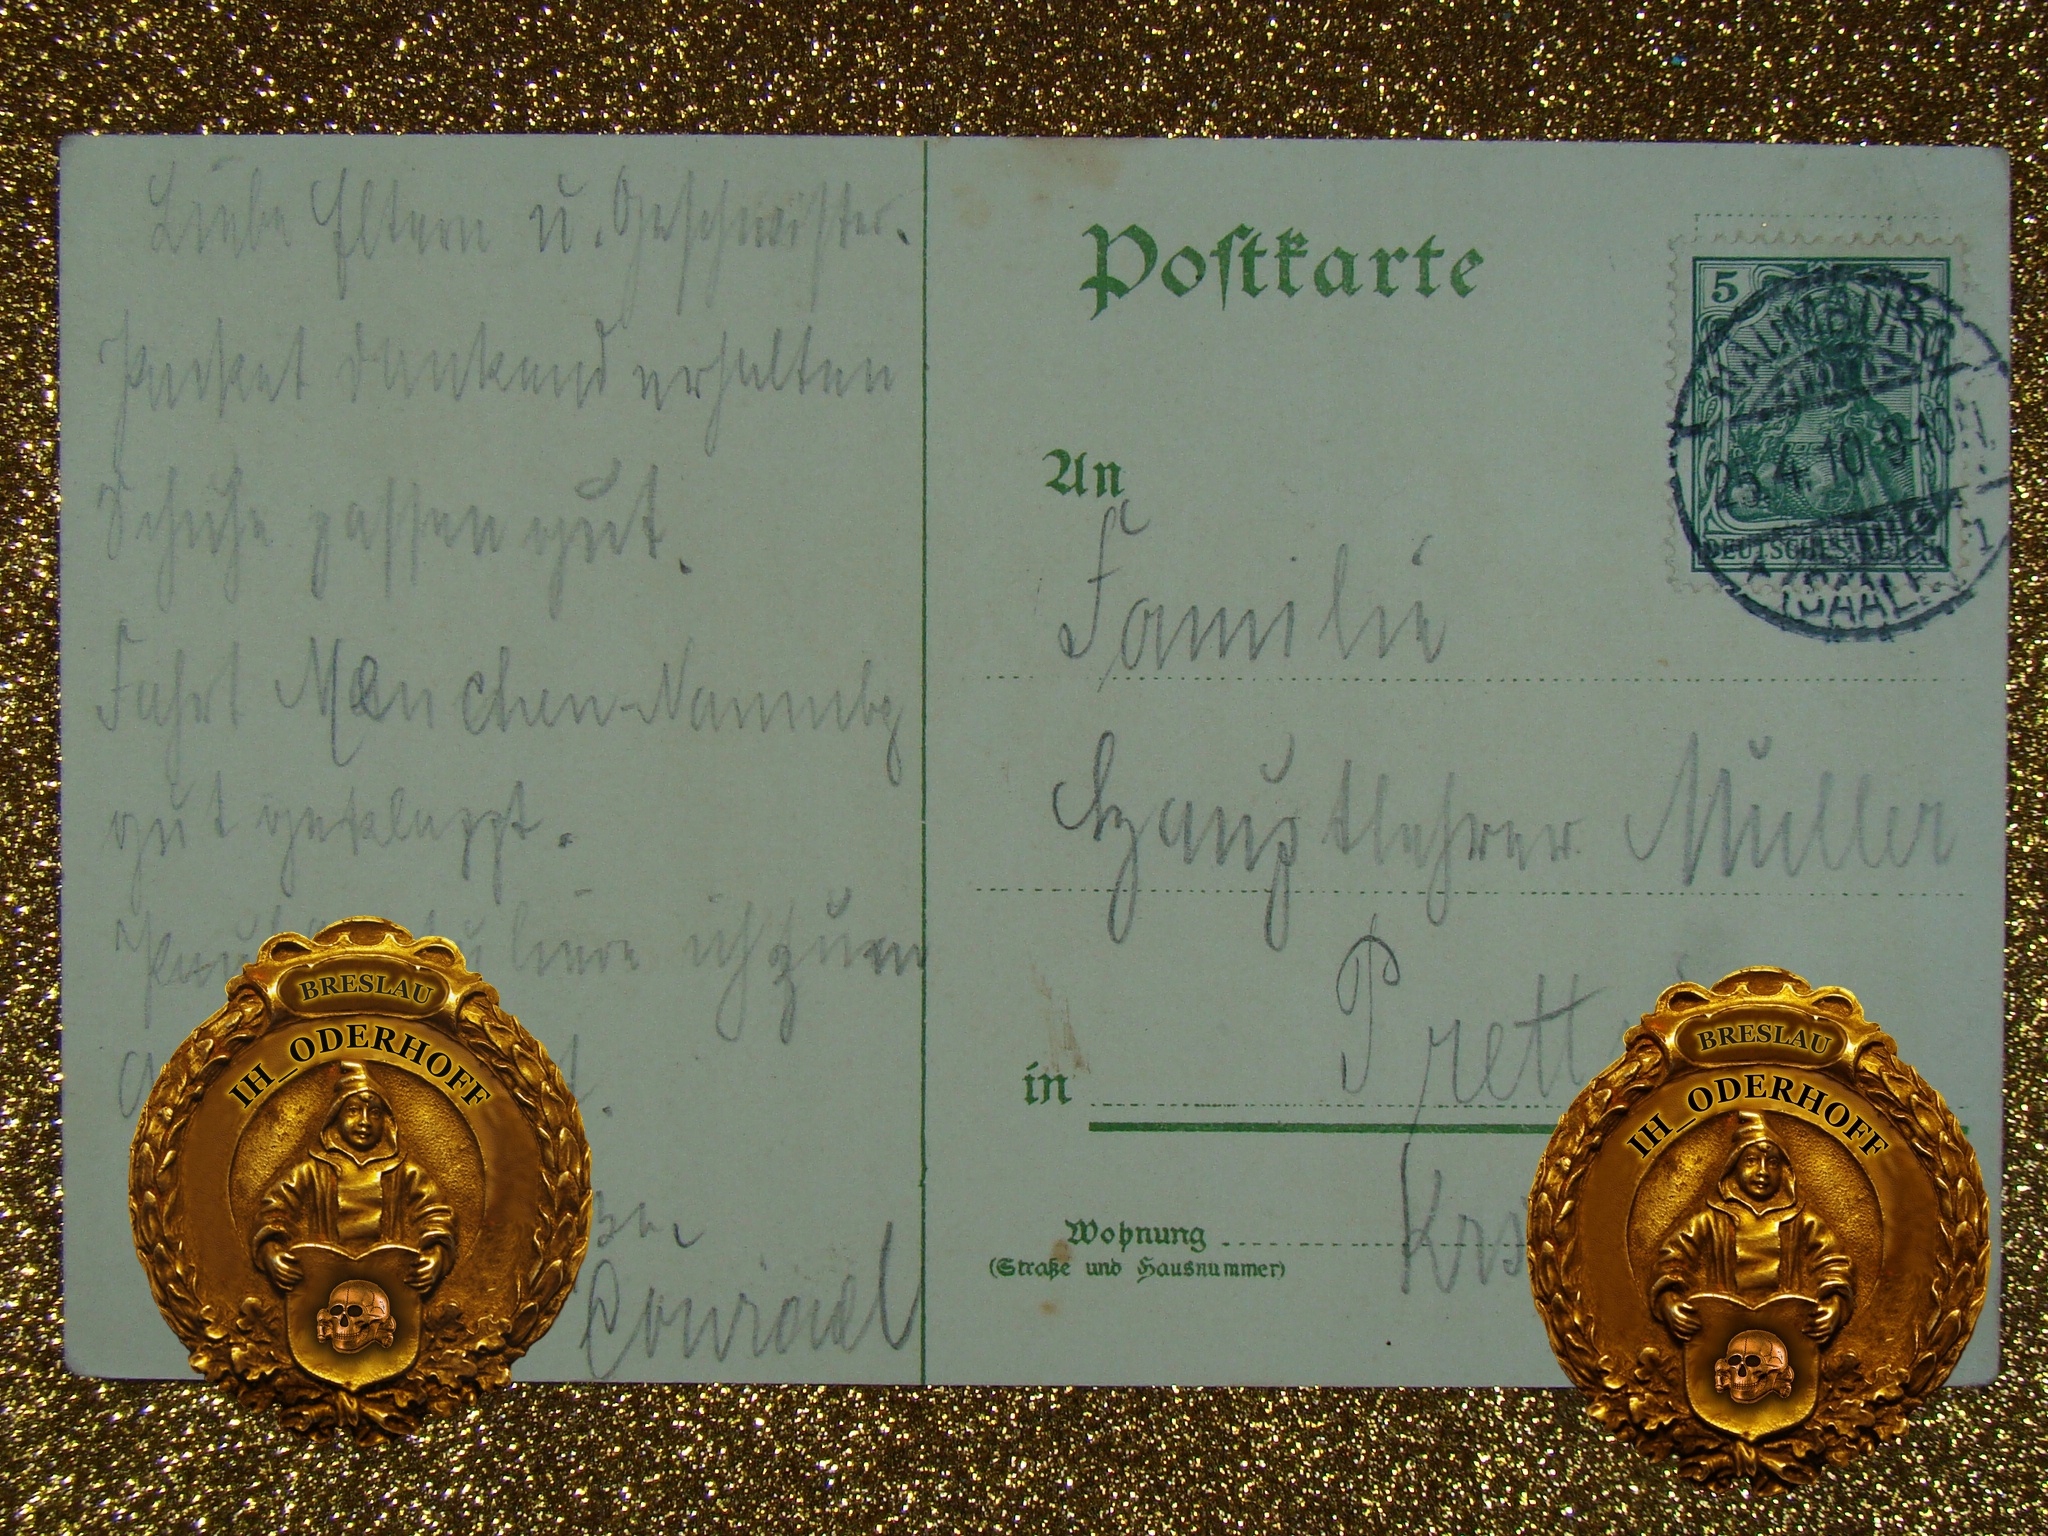 Liebe Eltern u. Geschwister.
Packet dankend erhalten
Schuhe passen gut.
Fahrt München-Naumbg
gut geklappt.
liere ich zum
Conrad
Postkarte
5
NAUMBURG
25.4.10.9-10
DEUTSCHES REICH
(SAALE)
An
Familie
Hauptlehrer Müller
in Prett
Wohnung Krs
(Straße und Hausnummer)
BRESLAU
IH_ODERHOFF
BRESLAU
IH_ODERHOFF